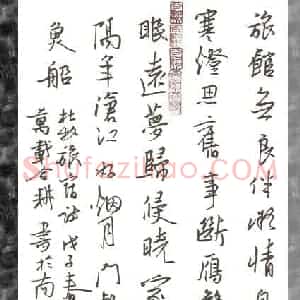 旅館無良伴凝情自
寒燈思舊事斷雁
眠遠夢歸侵曉家
隔年滄江好烟月門
魚船
杜牧旅宿詩戊子春
萬載谷耕書於南
Shufazidian.com